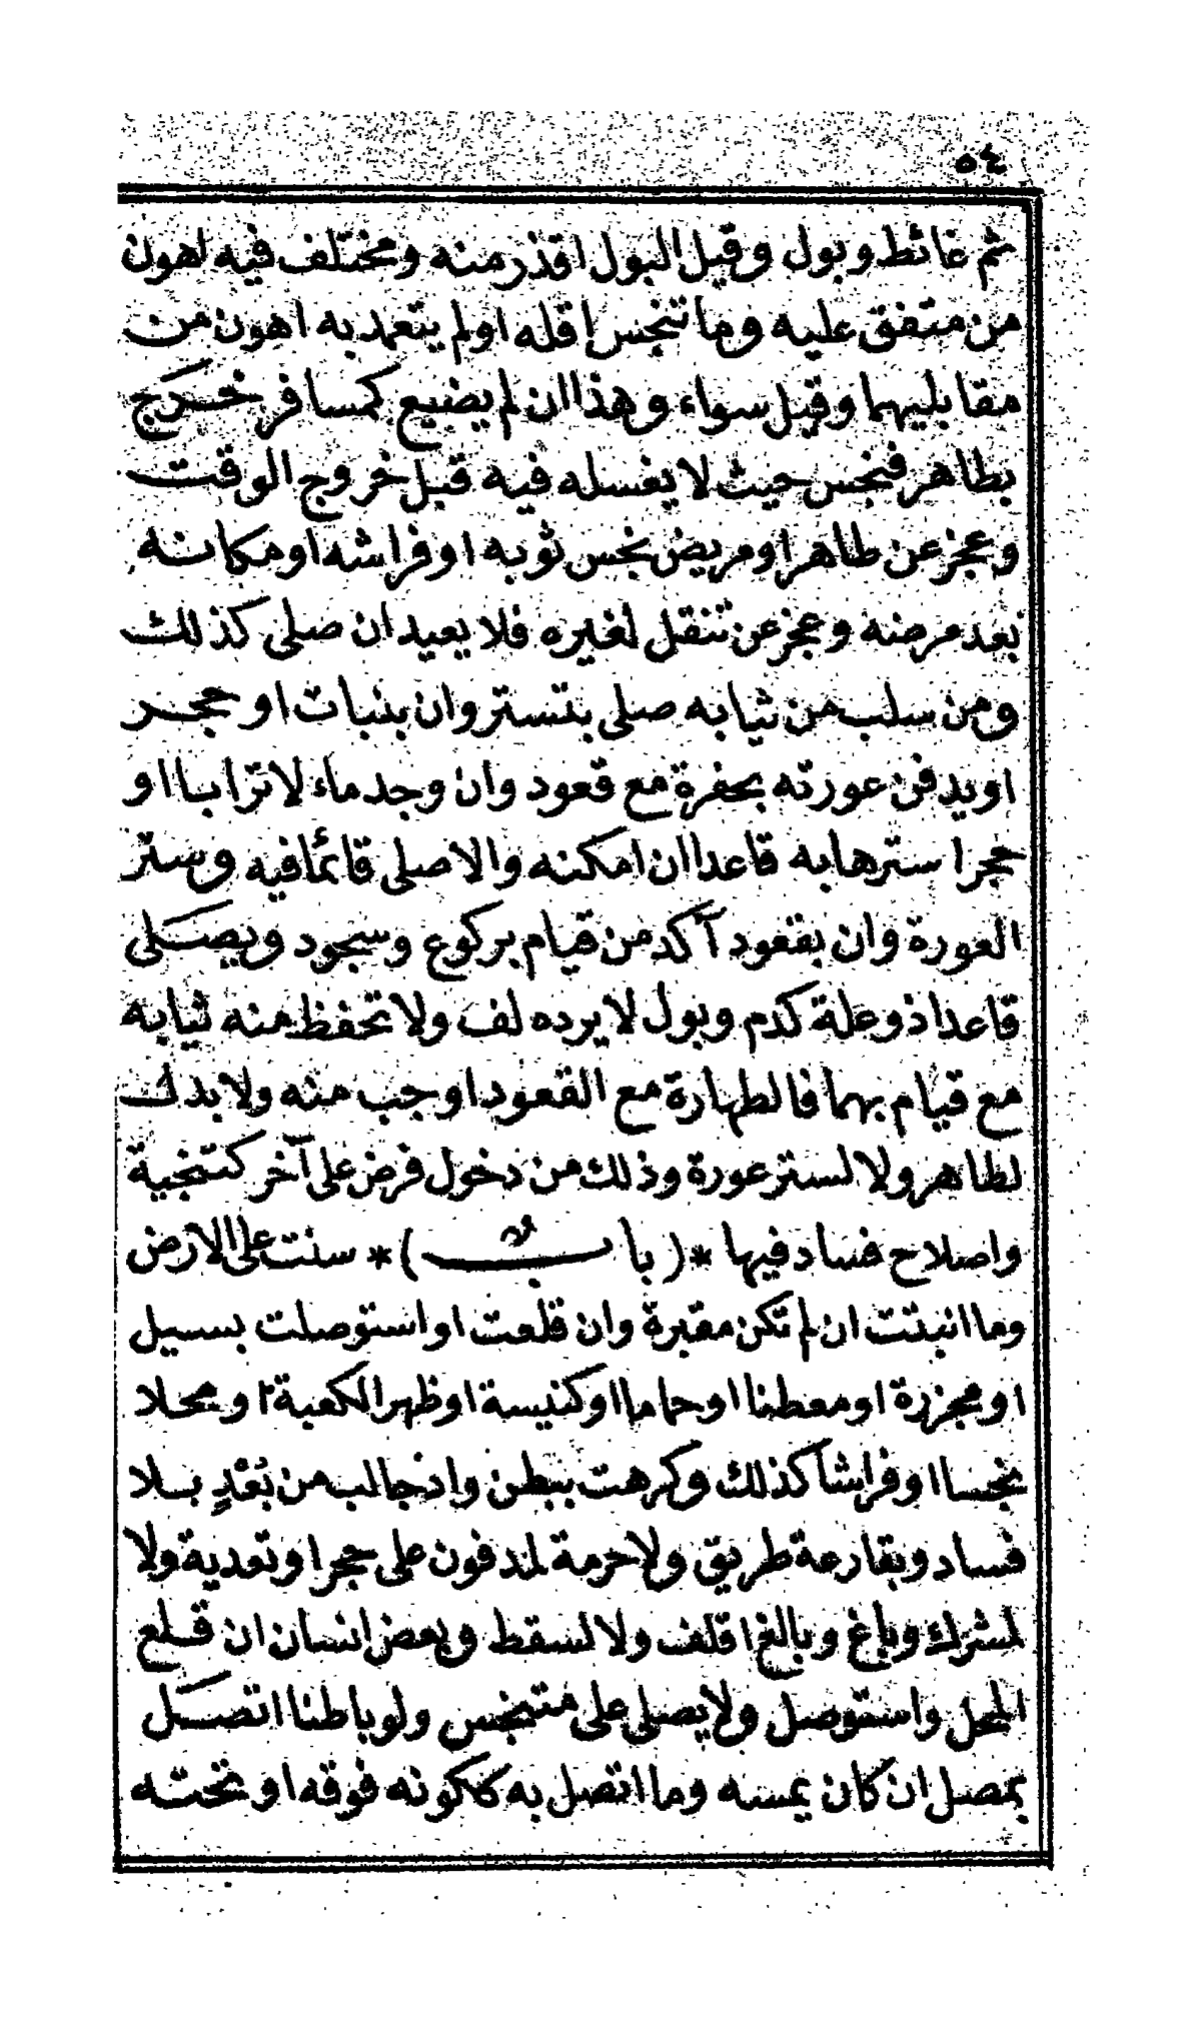 ٥٤
ثم غائط وبول وقيل البول اقذر منه ومختلف فيه اهون
من متفق عليه وما تنجس اقله او لم يتعمد به اهون من
مقابليهما وقيل سواء وهذا ان لم يضيع كمسافر خرج
بطاهر فنجس حيث لا يغسله فيه قبل خروج الوقت
وعجز عن طاهر او مريض نجس ثوبه او فراشه او مكانه
بعد مرضه وعجز عن تنقل لغيره فلا يعيد ان صلى كذلك
ومن سلب من ثيابه صلى بتستر وان بنبات او حجر
او يدفن عورته بحفرة مع قعود وان وجد ماء لا ترابا او
حجرا سترها به قاعدا ان امكنه والا صلى قائما فيه وستر
العورة وان بقعود آكد من قيام بركوع وسجود ويصلى
قاعدا ذو علة كدم وبول لا يرده لف ولا تحفظ منه ثيابه
مع قيام بهما فالطهارة مع القعود اوجب منه ولا بدل
لطاهر ولا لستر عورة وذلك من دخول فرض على آخر كتنجية
واصلاح فساد فيها * ( باب ) * سنت على الارض
وما انبتت ان لم تكن مقبرة وان قلعت او استوصلت بسيل
او مجزرة او معطنا او حماما او كنيسة او ظهر الكعبة او محلا
نجسا او فراشا كذلك وكرهت ببطن واد جالب من بعد بلا
فساد وبقارعة طريق ولا حرمة لمدفون على حجر او تعدية ولا
لمشرك وباغ وبالغ اقلف ولا لسقط وبعض انسان ان قلع
المحل واستوصل ولا يصلى على متنجس ولو باطنا اتصل
بمصل ان كان يمسه وما اتصل به ككونه فوقه او تحته